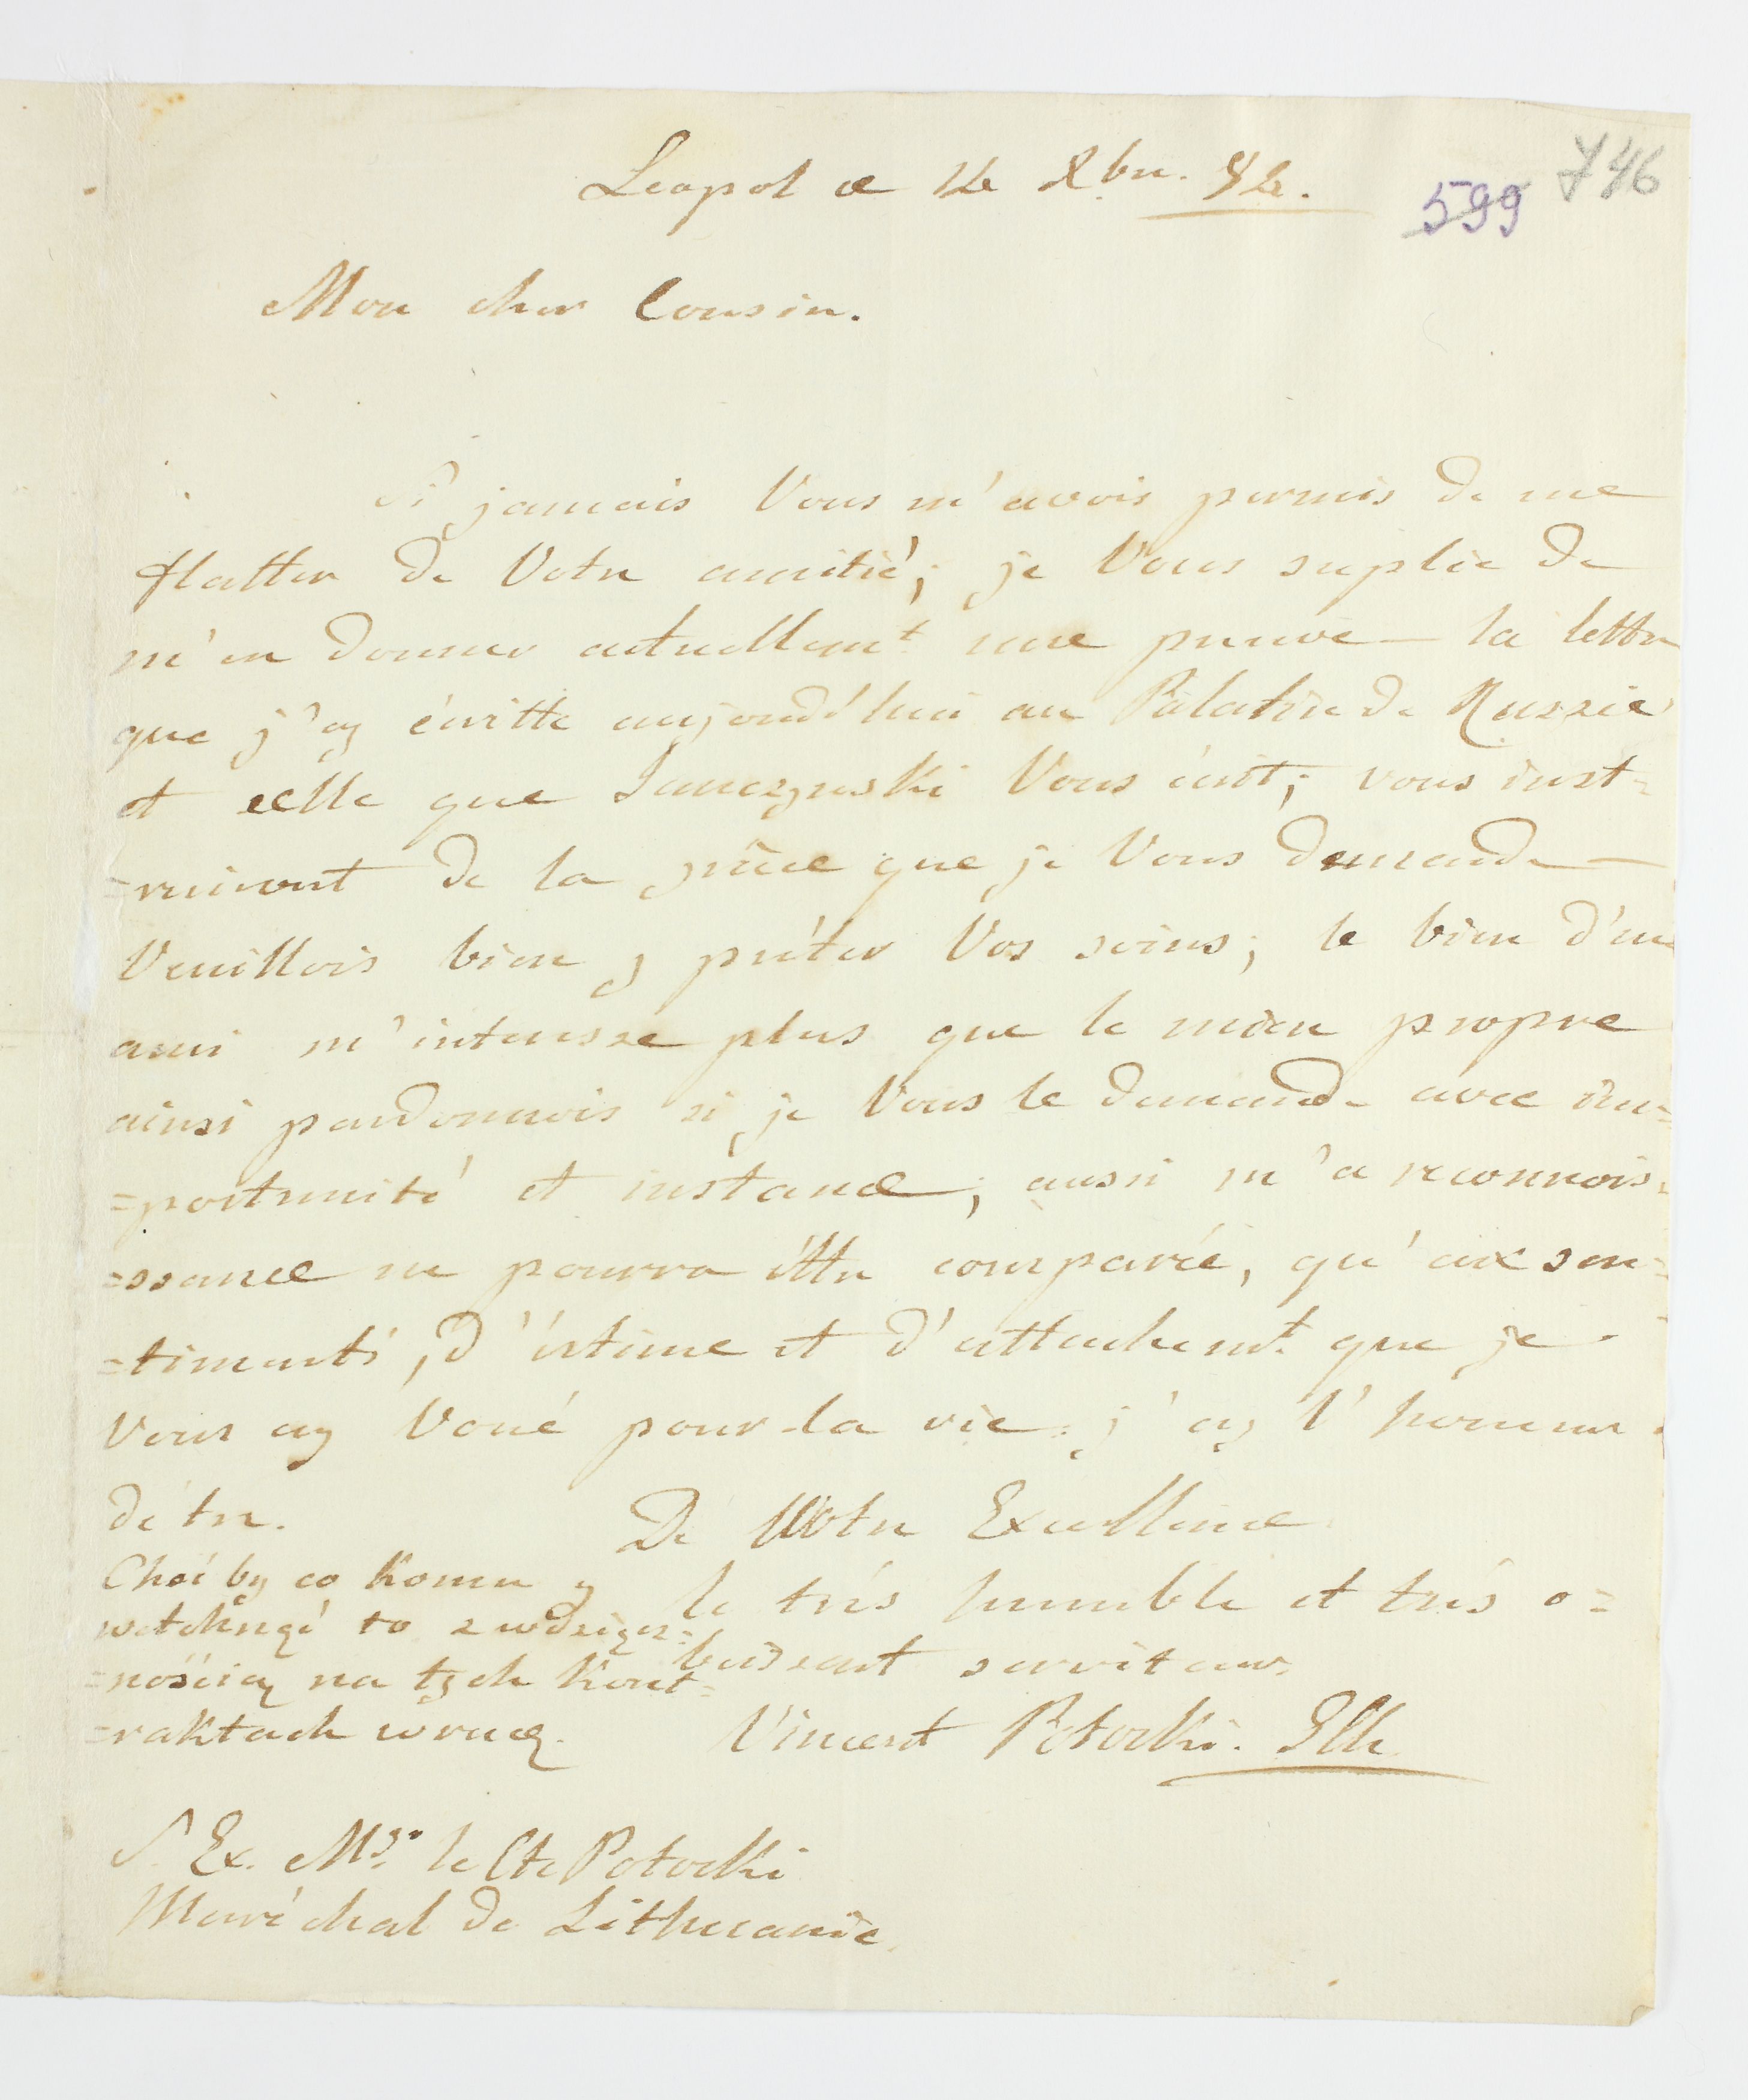 Leopol ce 12 Xbre. 82.
746
599
Mon cher Cousin.
Si jamais Vous m'avois permis de me
flatter de Votre amitié; je Vous suplie de
m'en donner actuellemt une preuve — la lettre
que j'ay écritte aujourd'hui au Palatin de Russie
et celle que Janczewski Vous écrit; vous inst=
=ruiront de la grâce que je Vous demande —
Veuillois bien y prêter Vos soins; le bien d'un
ami m'interesse plus que le mien propre
ainsi pardonnois si je Vous le demande avec im=
=portunité et instance; aussi m'a reconnois=
=ssance ne pourra êttre comparée, qu'aux sen=
=timents, d'éstime et d'attachemt. que je
Vous ay Voué pour la vie. j'ay l'honneur
d'étre. De Votre Excellence
le trés humble et trés o=
beissant serviteur.
Choć by co komu y
wetchnąć to z wdzięcz=
=nością na tych Kont=
=raktach wrucę.
Vincent Potocki.
S. Ex. Mgr. le Cte Potocki
Maréchal de Lithuanie.